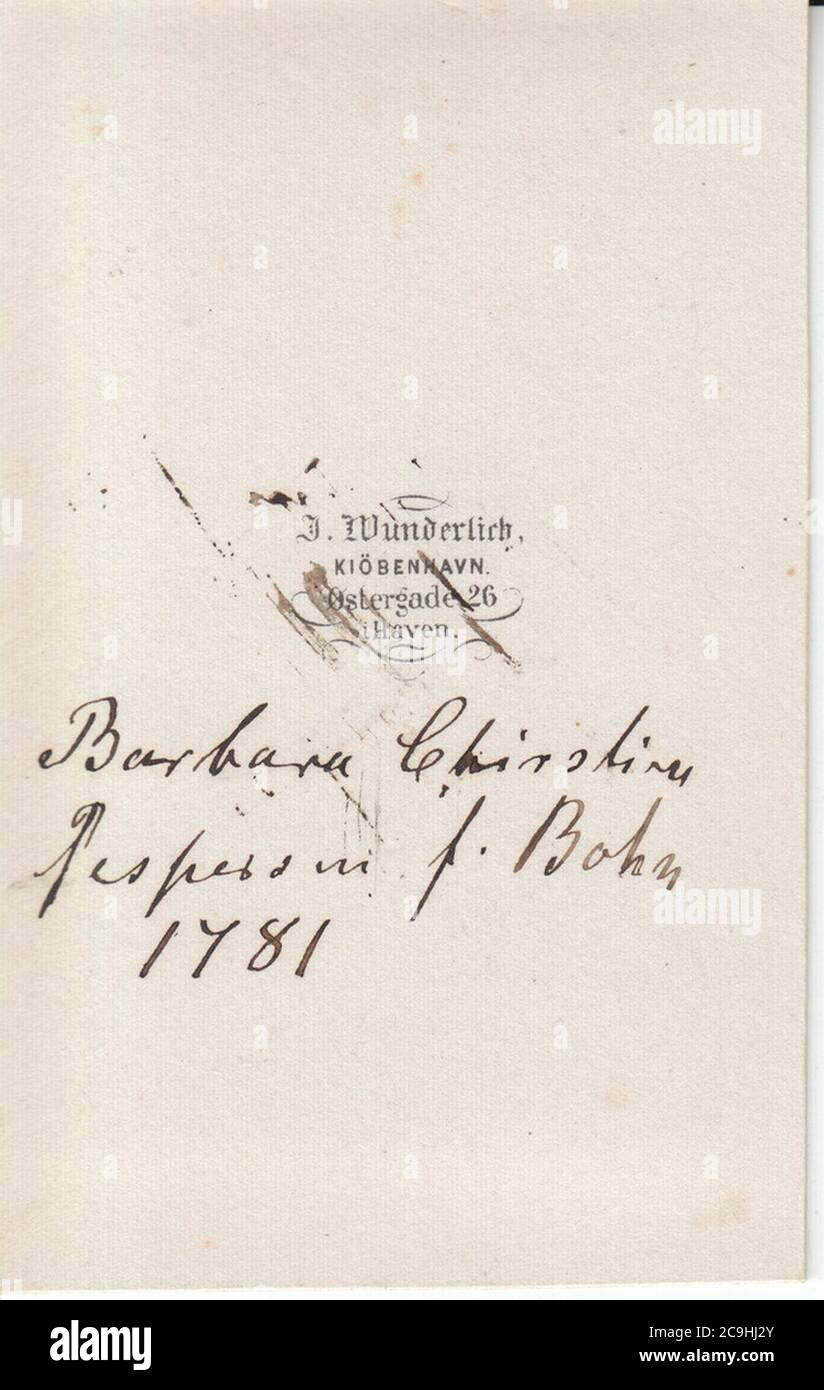 J. Wunderlich,
KIÖBENHAVN.
Østergade 26
i Haven.
Barbara Chirstine
Jespersen f. Bohn
1781
alamy
Image ID: 2C9HJ2Y
www.alamy.com